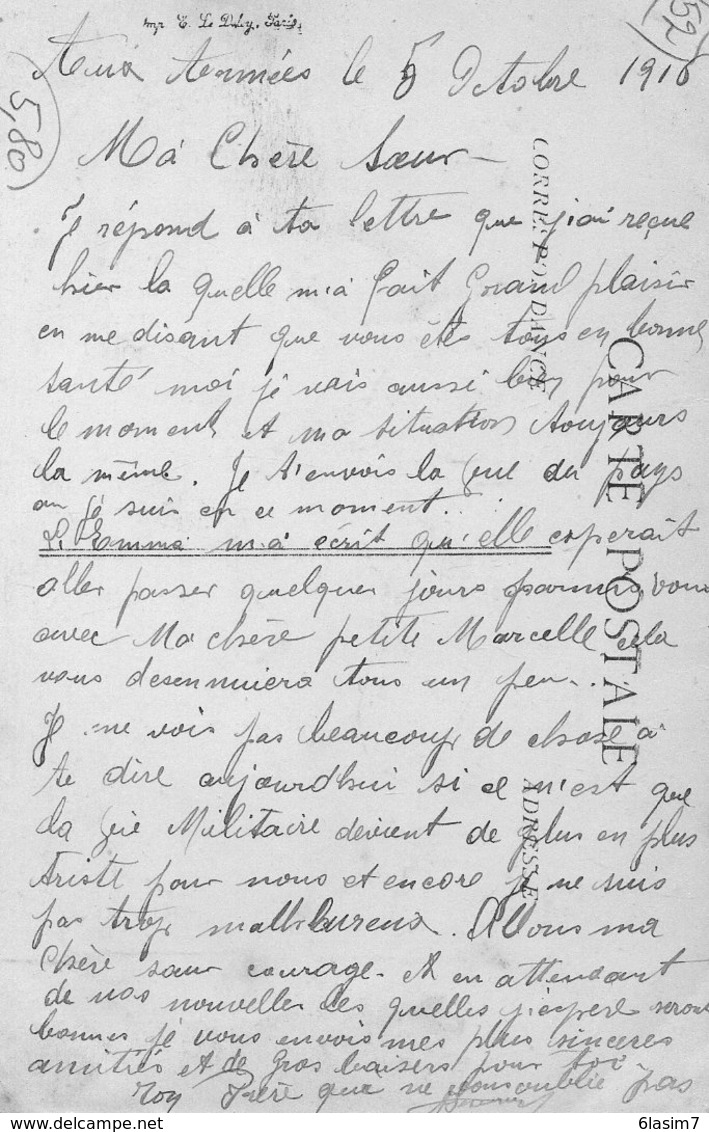 Imp. E. Le Deley, Paris
52
5,80
Aux Armées le 5 Octobre 1916
Ma Chère Sœur
CORRESPONDANCE
Je répond à ta lettre que j'ai reçue
hier la quelle m'a fait Grand plaisir
en me disant que vous étes tous en bonne
santé moi je vais aussi bien pour
le moment et ma situation toujours
CARTE POSTALE
la même. Je t'envois la vue du pays
ou je suis en ce moment.
Emma m'a écrit qu'elle esperait
aller passer quelques jours parmis vous
avec Ma chère petite Marcelle cela
vous desennuiera tous un peu..
Je ne vois pas beaucoup de chose à
te dire aujourdhui si ce n'est que
ADRESSE
la vie Militaire devient de plus en plus
triste pour nous et encore je ne suis
pas trop malheureux. Allons ma
Chère sœur courage. et en attendant
de vos nouvelles les quelles j'espere seront
bonnes je vous envois mes plus sinceres
amitiés et de Gros baisers pour toi
Ton Frère que ne vous oublie pas
6lasim7